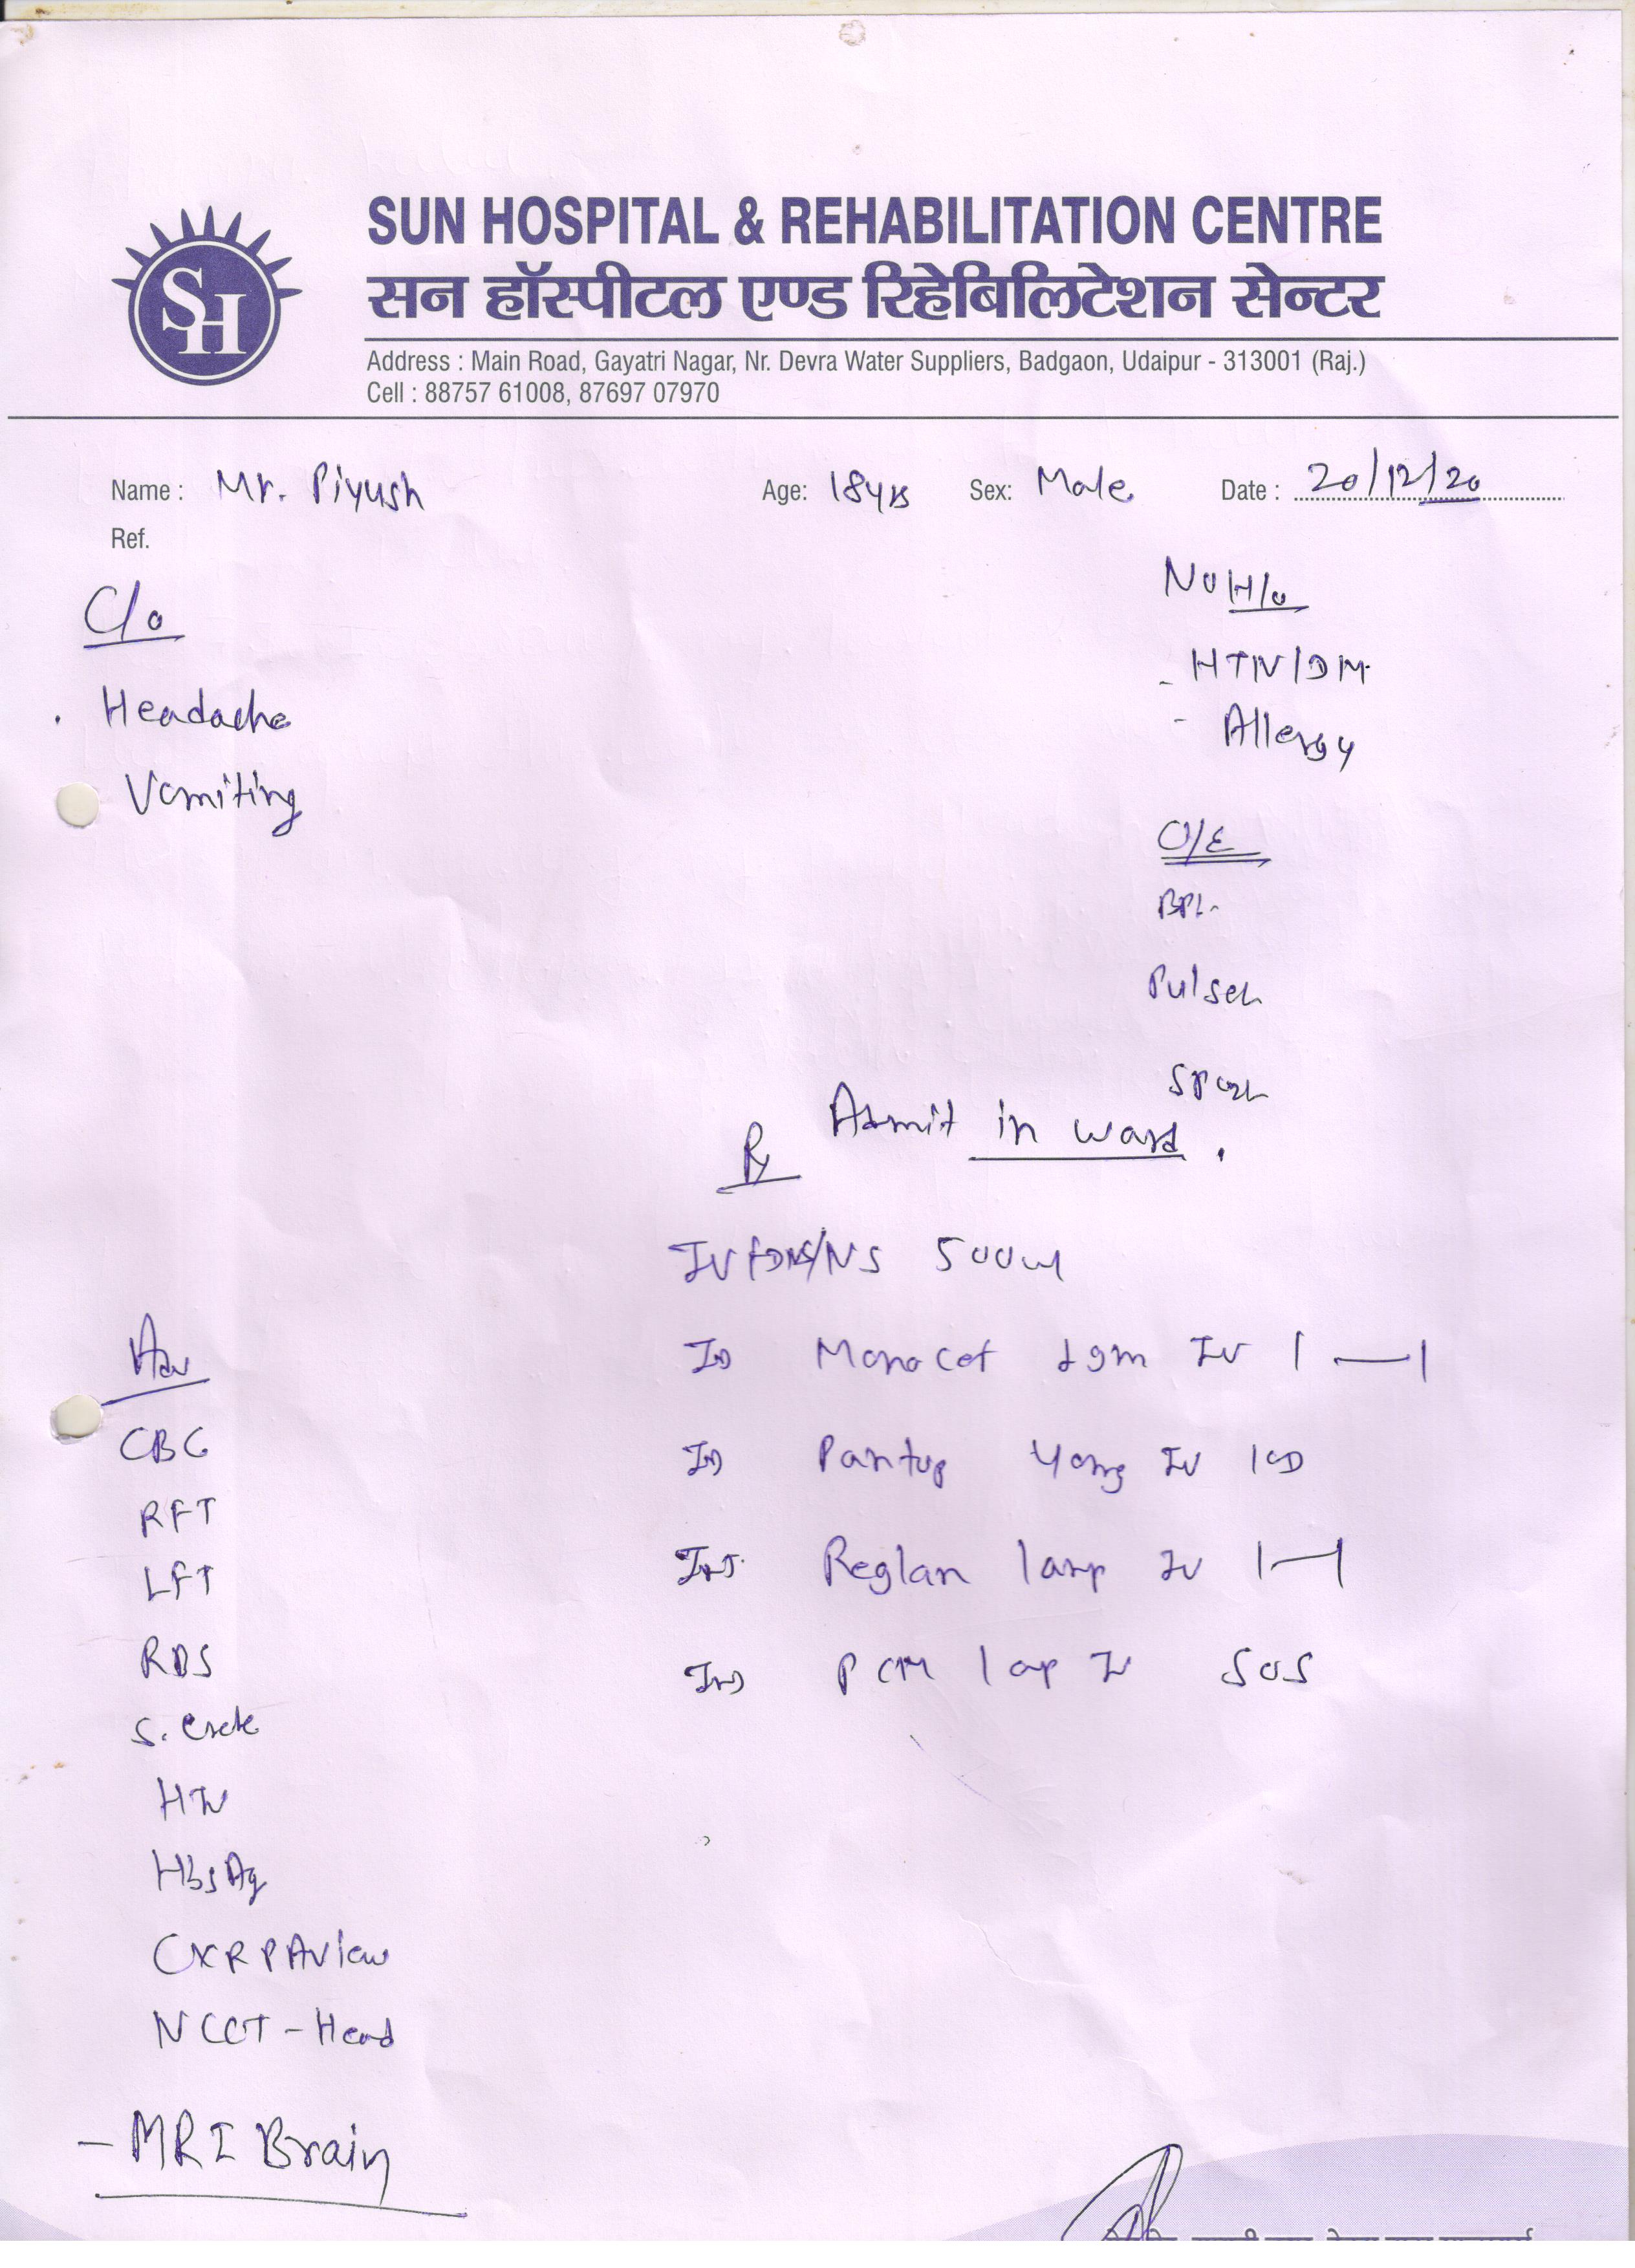 SUN HOSPITAL & REHABILITATION CENTRE
सन हॉस्पीटल एण्ड रिहेबिलिटेशन सेन्टर
SH
Address : Main Road, Gayatri Nagar, Nr. Devra Water Suppliers, Badgaon, Udaipur - 313001 (Raj.)
Cell : 88757 61008, 87697 07970
Name : Mr. Piyush Age: 18yrs Sex: Male Date : 20/12/20
Ref.
C/o
Headache
Vomiting
No H/o
- HTN/DM
- Allergy
O/E
Pulse
Admit in ward.
Rx
DNS/NS 500ml
Monocef 1gm IV 1 — 1
Pantop 40mg IV 1 OD
Inj Reglan 1amp IV 1—1
PCM 1amp IV SOS
Adv
CBC
RFT
LFT
RBS
HIV
HbsAg
CXR PA view
NCCT - Head
- MRI Brain